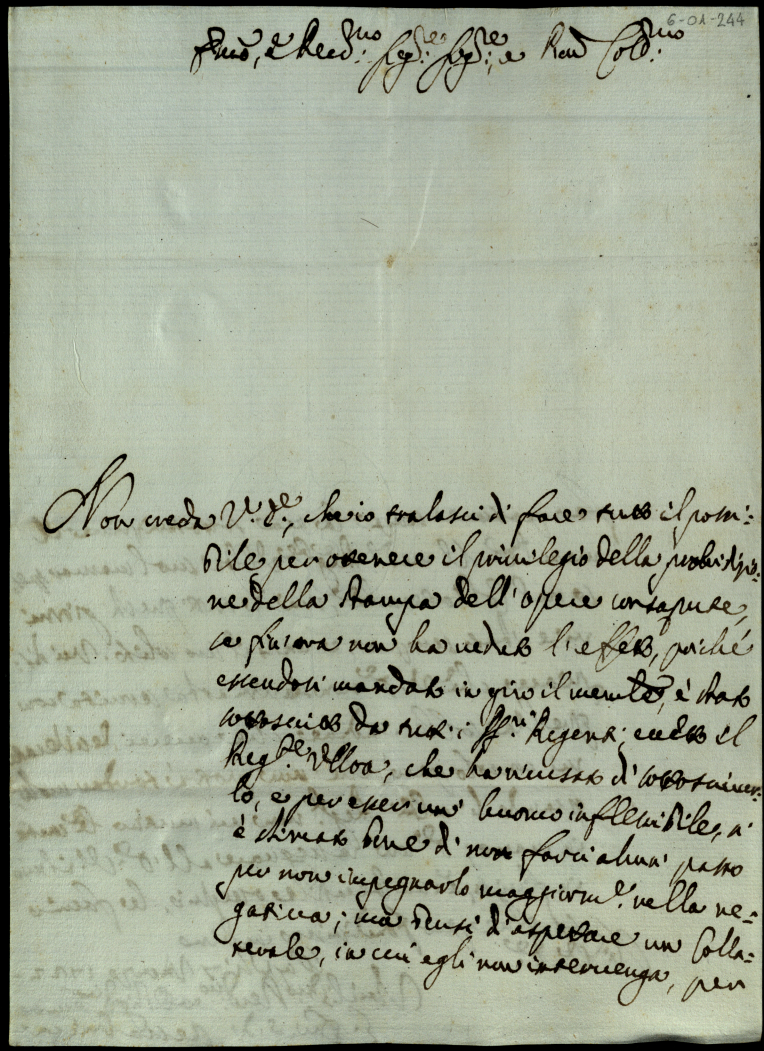 6-01-244
Emo, e Revd:mo Sigre: Sigre:, e Pad Cold:mo
Non creda V. Se., che io tralasci di fare tutto il possi:
bile per ottenere il privilegio della proibizio
ne della stampa dell'opere consapute,
se finora non ha veduto l'effetto, poiché
essendosi mandato in giro il memle, è stato
sottoscritto da tutti i SS.ri Regenti, eccetto il
Regte. Ulloa, che ha ricusato di sottoscriver-
lo, e per esser un' huomo inflessibile, si
è stimato bene di non farci alcun' passo
per non impegnarlo maggiorme. nella ne-
gativa; ma bensi d'aspettare un Colla-
terale, in cui egli non intervenga, per